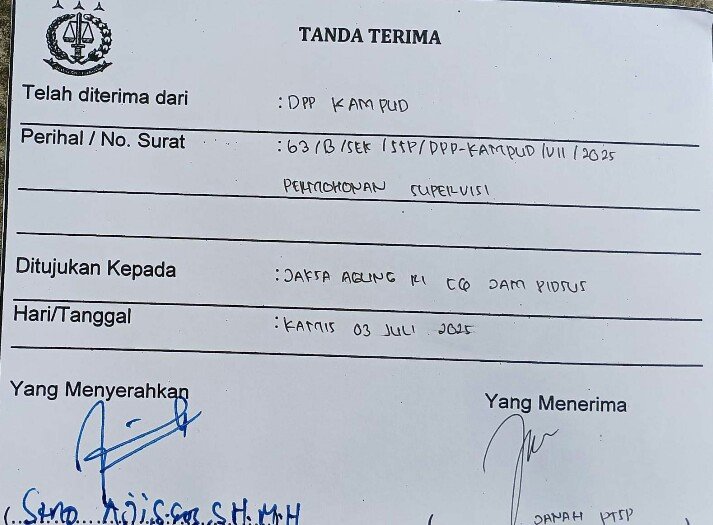 TANDA TERIMA
Telah diterima dari : DPP KAMPUD
Perihal / No. Surat : 63/B/SEK/SSP/DPP-KAMPUD/VII/2025
PERMOHONAN SUPERVISI
Ditujukan Kepada : JAKSA AGUNG RI CQ JAM PIDSUS
Hari/Tanggal : KAMIS 03 JULI 2025
Yang Menyerahkan
Yang Menerima
(Seno Aji S.Sos S.H. M.H
( JANAH PTSP )